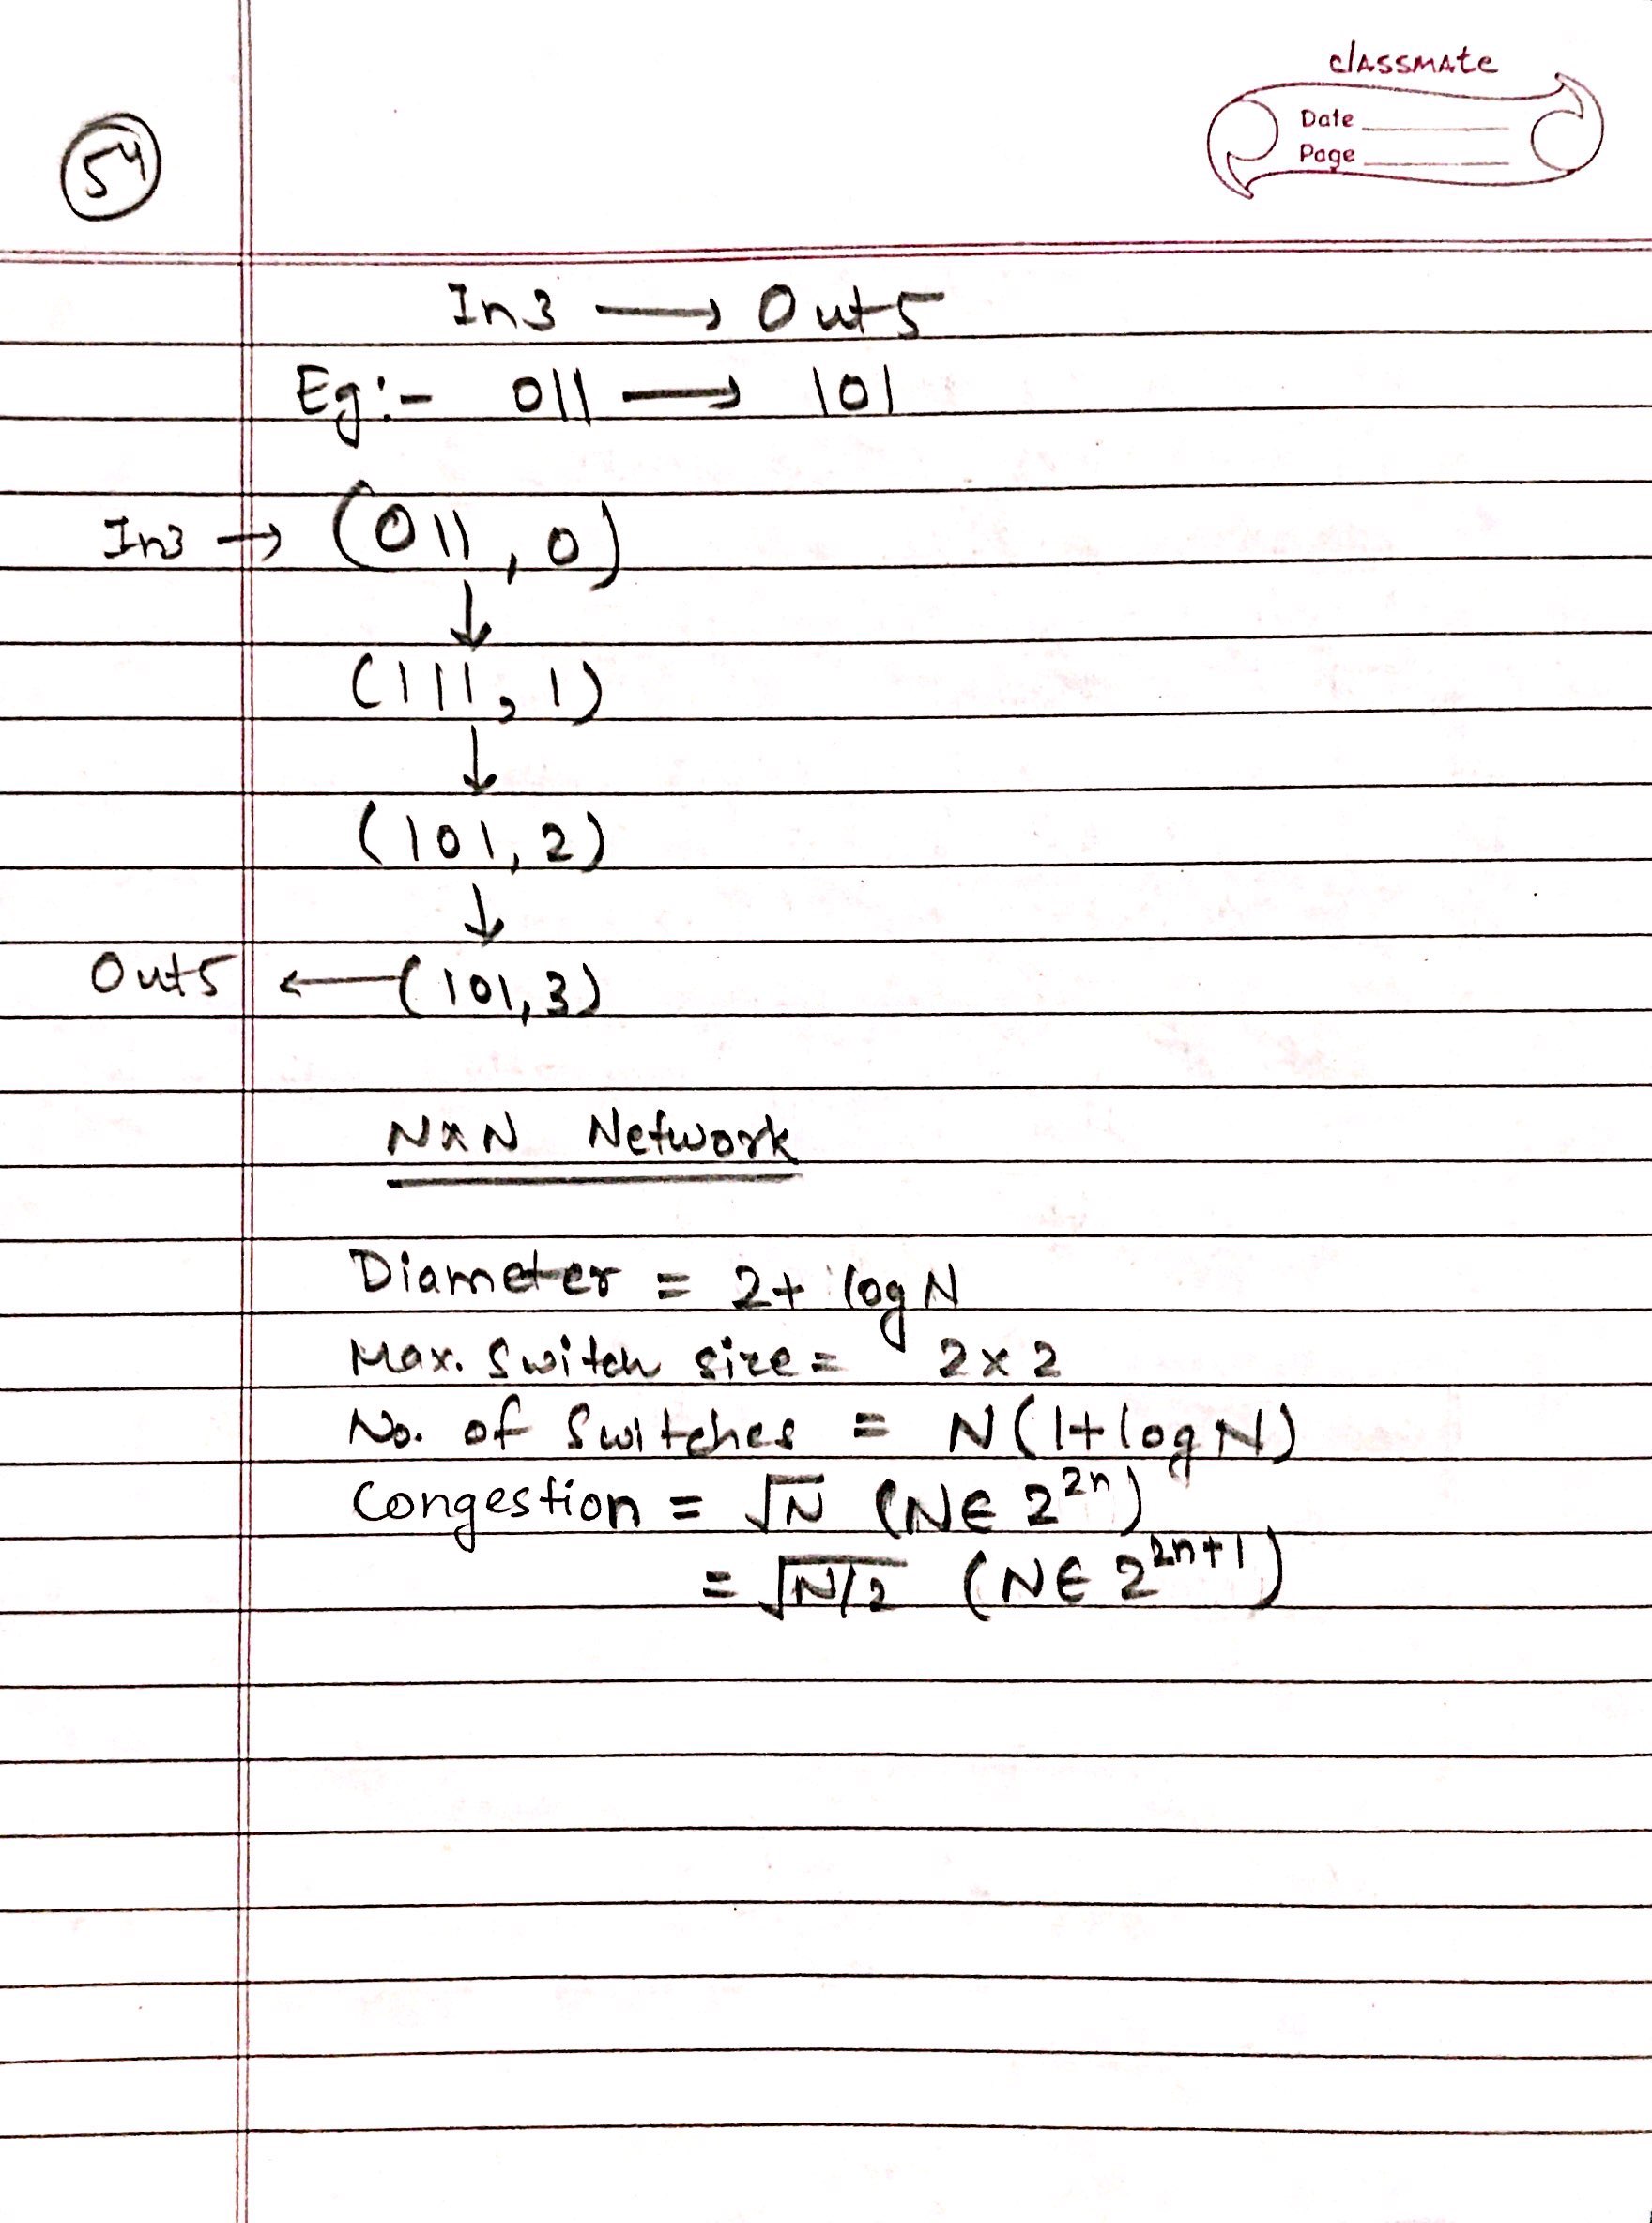 classmate
Date
Page
54
In3 → Out5
Eg:- 011 → 101
In3 → (011, 0)
↓
(111, 1)
↓
(101, 2)
↓
Out5 ← (101, 3)
NxN Network
Diameter = 2 + log N
Max. Switch size = 2 x 2
No. of Switches = N(1+log N)
Congestion = √N (N∈ 2²ⁿ)
= √N/2 (N∈ 2²ⁿ⁺¹)